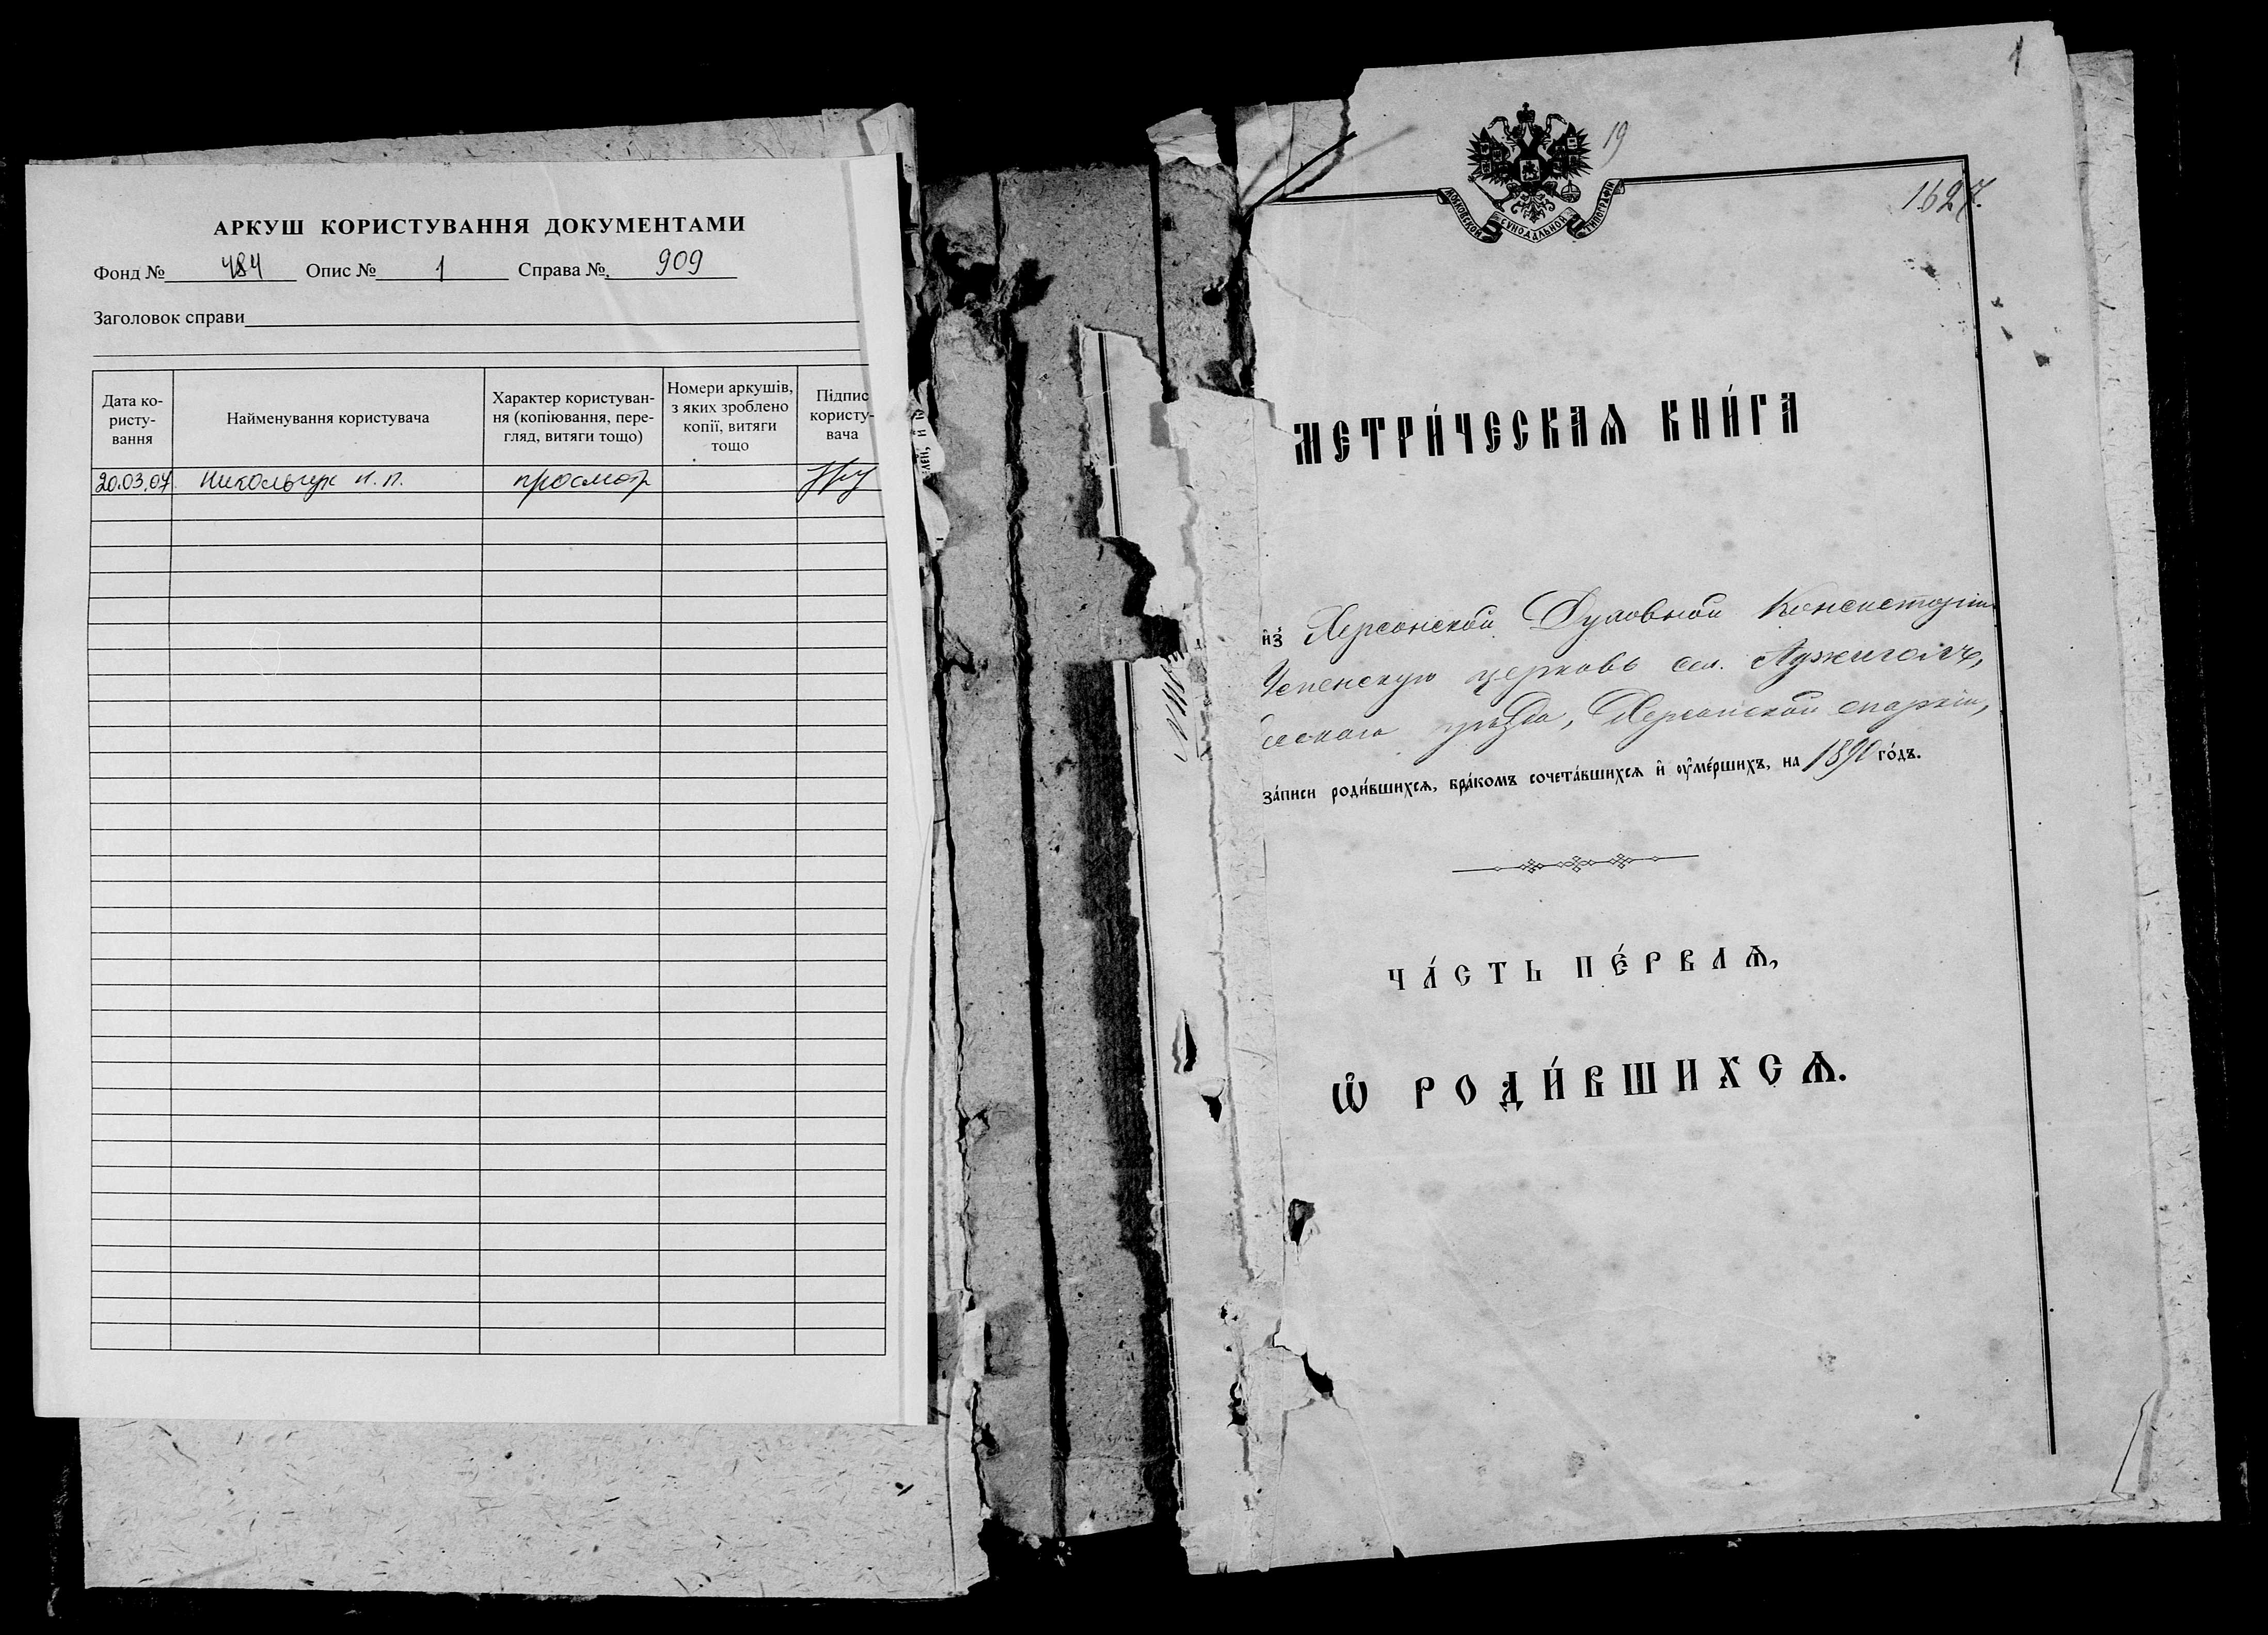 АРКУШ КОРИСТУВАННЯ ДОКУМЕНТАМИ
Фонд № 484 Опис № 1 Справа №. 909
Заголовок справи
Дата ко-
ристу-
вання
Найменування користувача
Характер користуван-
ня (копіювання, пере-
гляд, витяги тощо)
Номери аркушів,
з яких зроблено
копії, витяги
тощо
Підпис
користу-
вача
20.03.07. Никольчук просмотр
1
19
1627.
МОСКОВСКОЙ СѴНОДАЛЬНОЙ ТИПОГРАФІИ
МЕТРИ́ЧЕСКАѦ КНИ́ГА
и҆з̾ Херсонской Духовной Консисторіи
Успенскую церковь сел.
скаго уѣзда, Херсонской епархіи,
за́писи роди́вшихсѧ, бра́комъ сочета́вшихсѧ и҆ ѹ҆ме́ршихъ, на 1890 го́дъ.
ЧА́СТЬ ПЕ́РВАѦ,
Ѡ҆ РОДИ́ВШИХСѦ.